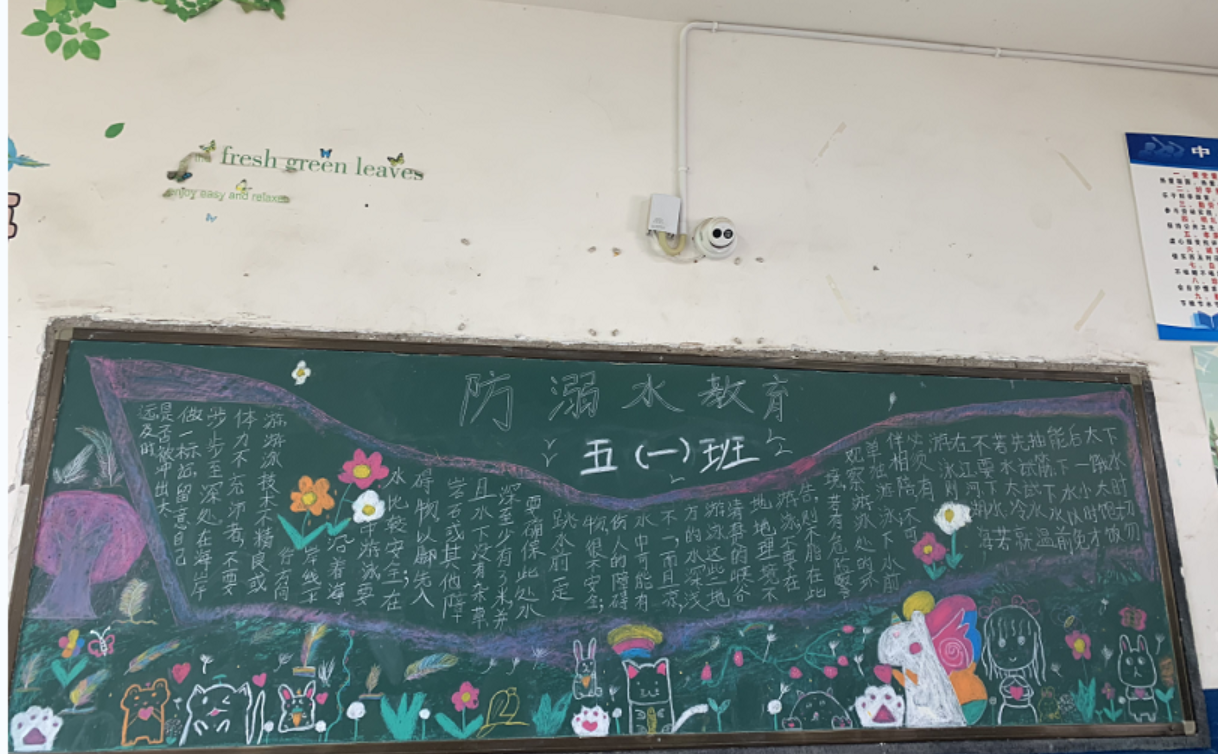 fresh green leaves
enjoy easy and relaxed
中
防溺水教育
五(一)班
下水时勿
太饿太饱饭
后一小时才
能下水以免
抽筋下水前
先试试水温
若水太冷就
不要下水若
左江河湖海
游泳则
必须有
伴相陪不可
单独游泳下水前
察游泳处的环
境,若有危险警
告,则不能在此
游泳不要在
地地理境不
清楚的峡谷
游泳这些地
方的水深浅
不一,而且凉,
水中可能有
伤人的障碍
物,很不安全,
跳水前一定
要确保此处水
深至少有3米,并
且水下没有杂草
岩石或其他障
碍物以脚先入
水比较安全,在
海中游泳要
沿着海
岸线平
行方向
游游泳技术不精良或
体力不充沛者,不要
步步至深处在海岸
做一标志留意自己
是否被冲出太
远及时